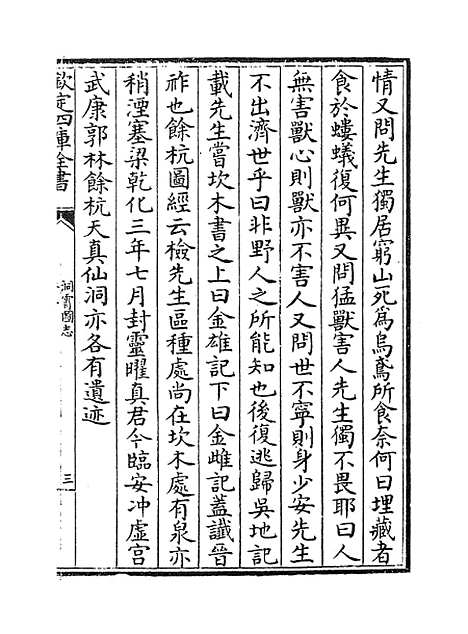 情又問先生獨居窮山死爲烏鳶所食奈何曰埋藏者
食於螻蟻復何異又問猛獸害人先生獨不畏耶曰人
無害獸心則獸亦不害人又問世不寧則身少安先生
不出濟世乎曰非野人之所能知也後復逃歸吳地記
載先生嘗坎木書之上曰金雄記下曰金雌記蓋讖晉
祚也餘杭圖經云檢先生區種處尚在坎木處有泉亦
稍湮塞梁乾化三年七月封靈曜真君今臨安沖虛宫
武康郭林餘杭天真仙洞亦各有遺迹
欽定四庫全書
洞霄圖志
三